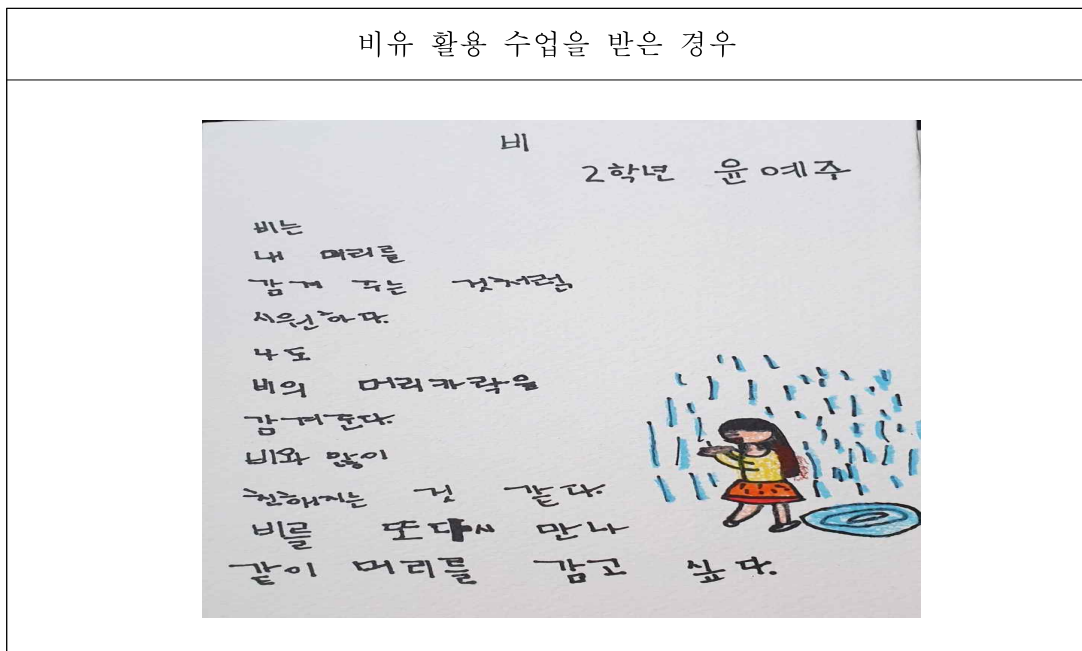 비유 활용 수업을 받은 경우
비
2학년 윤예주
비는
내 머리를
감겨 주는 것처럼
시원하다.
나도
비의 머리카락을
감겨준다.
비와 많이
친해지는 것 같다.
비를 또다시 만나
같이 머리를 감고 싶다.